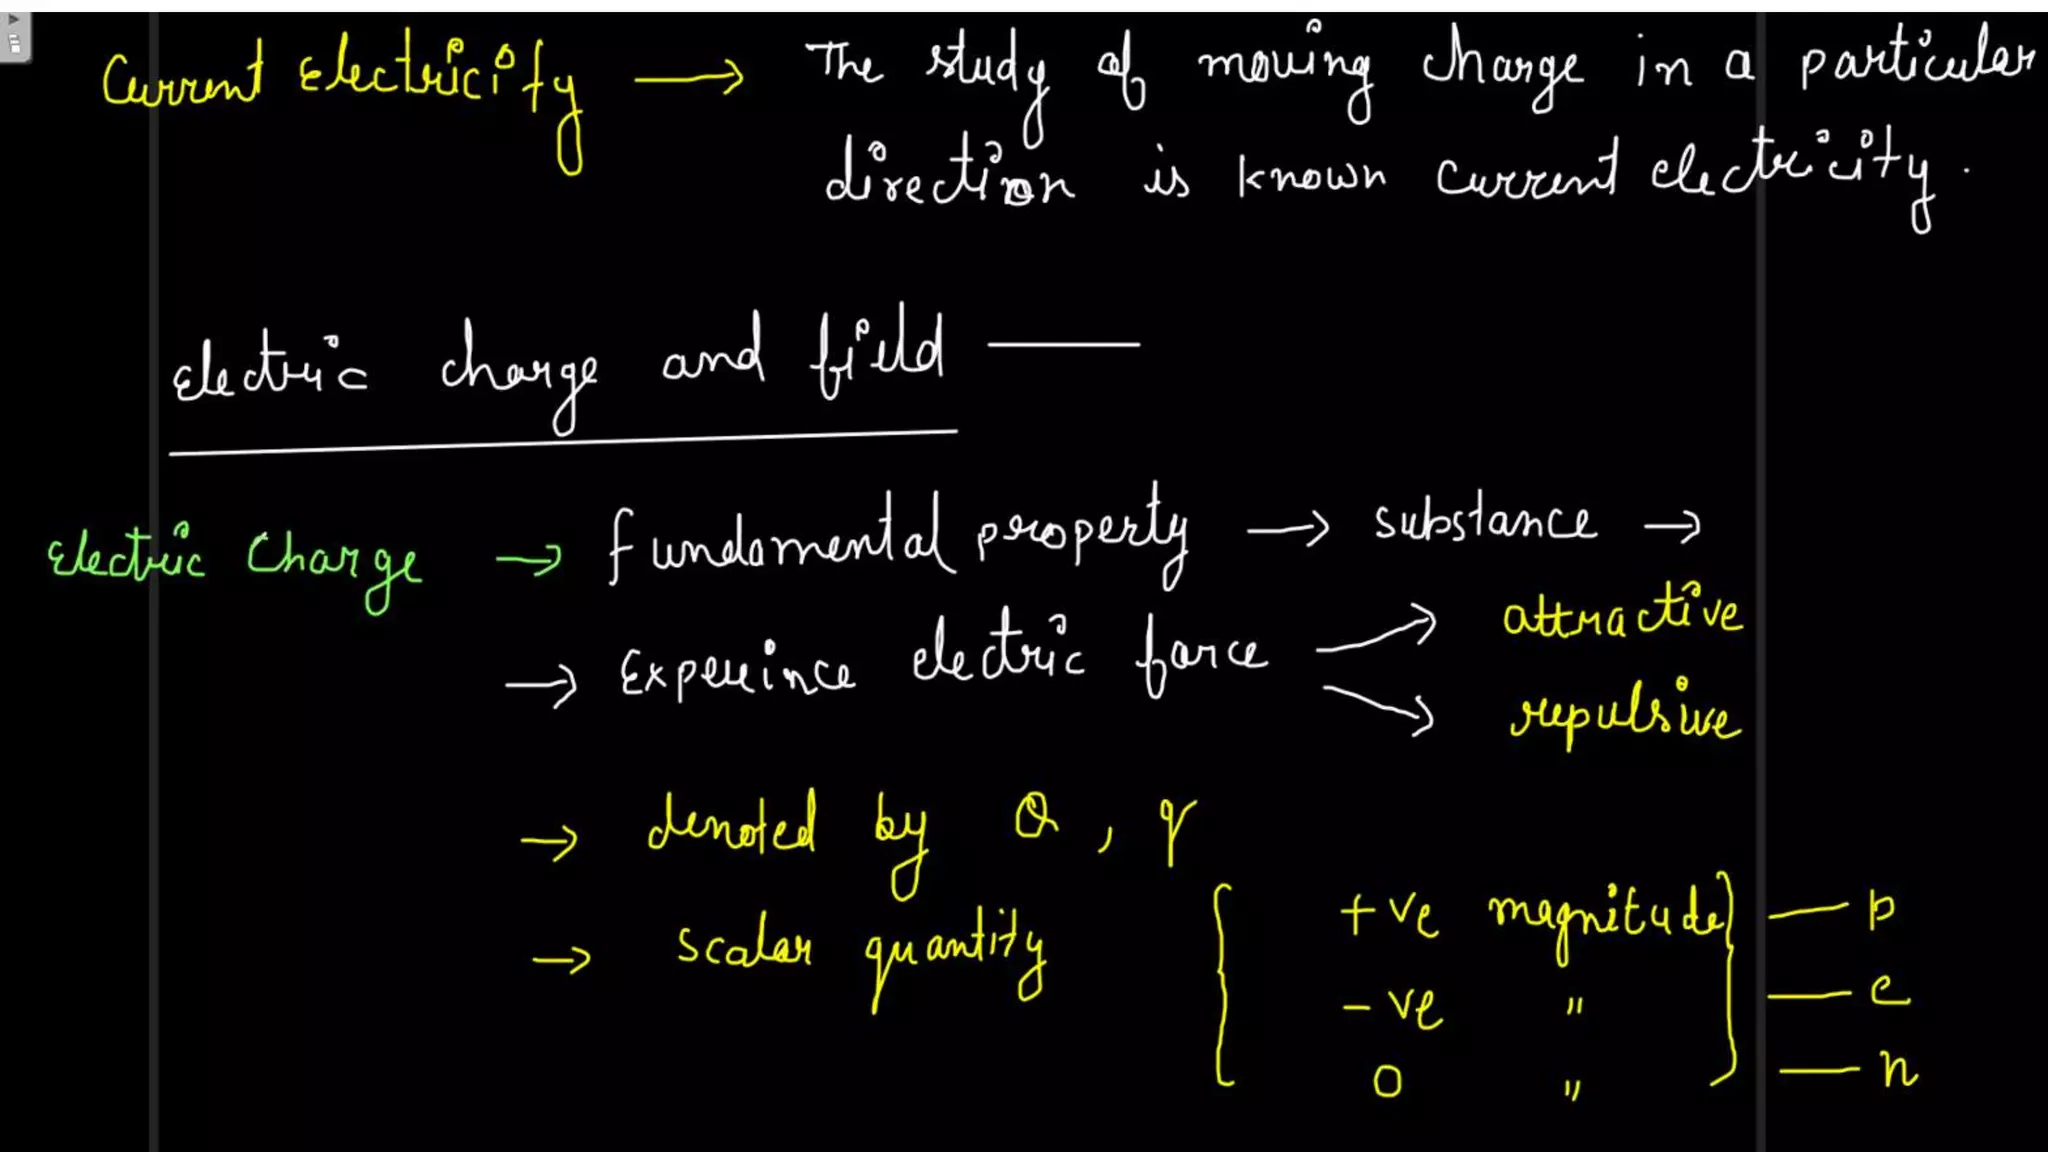 Current Electricity → The study of moving charge in a particular
direction is known current electricity.
Electric charge and field —
Electric Charge → fundamental property → substance →
→ Experince electric force → attractive
→ repulsive
→ denoted by Q, q
→ scalar quantity { +ve magnitude } — p
-ve " — e
0 " — n